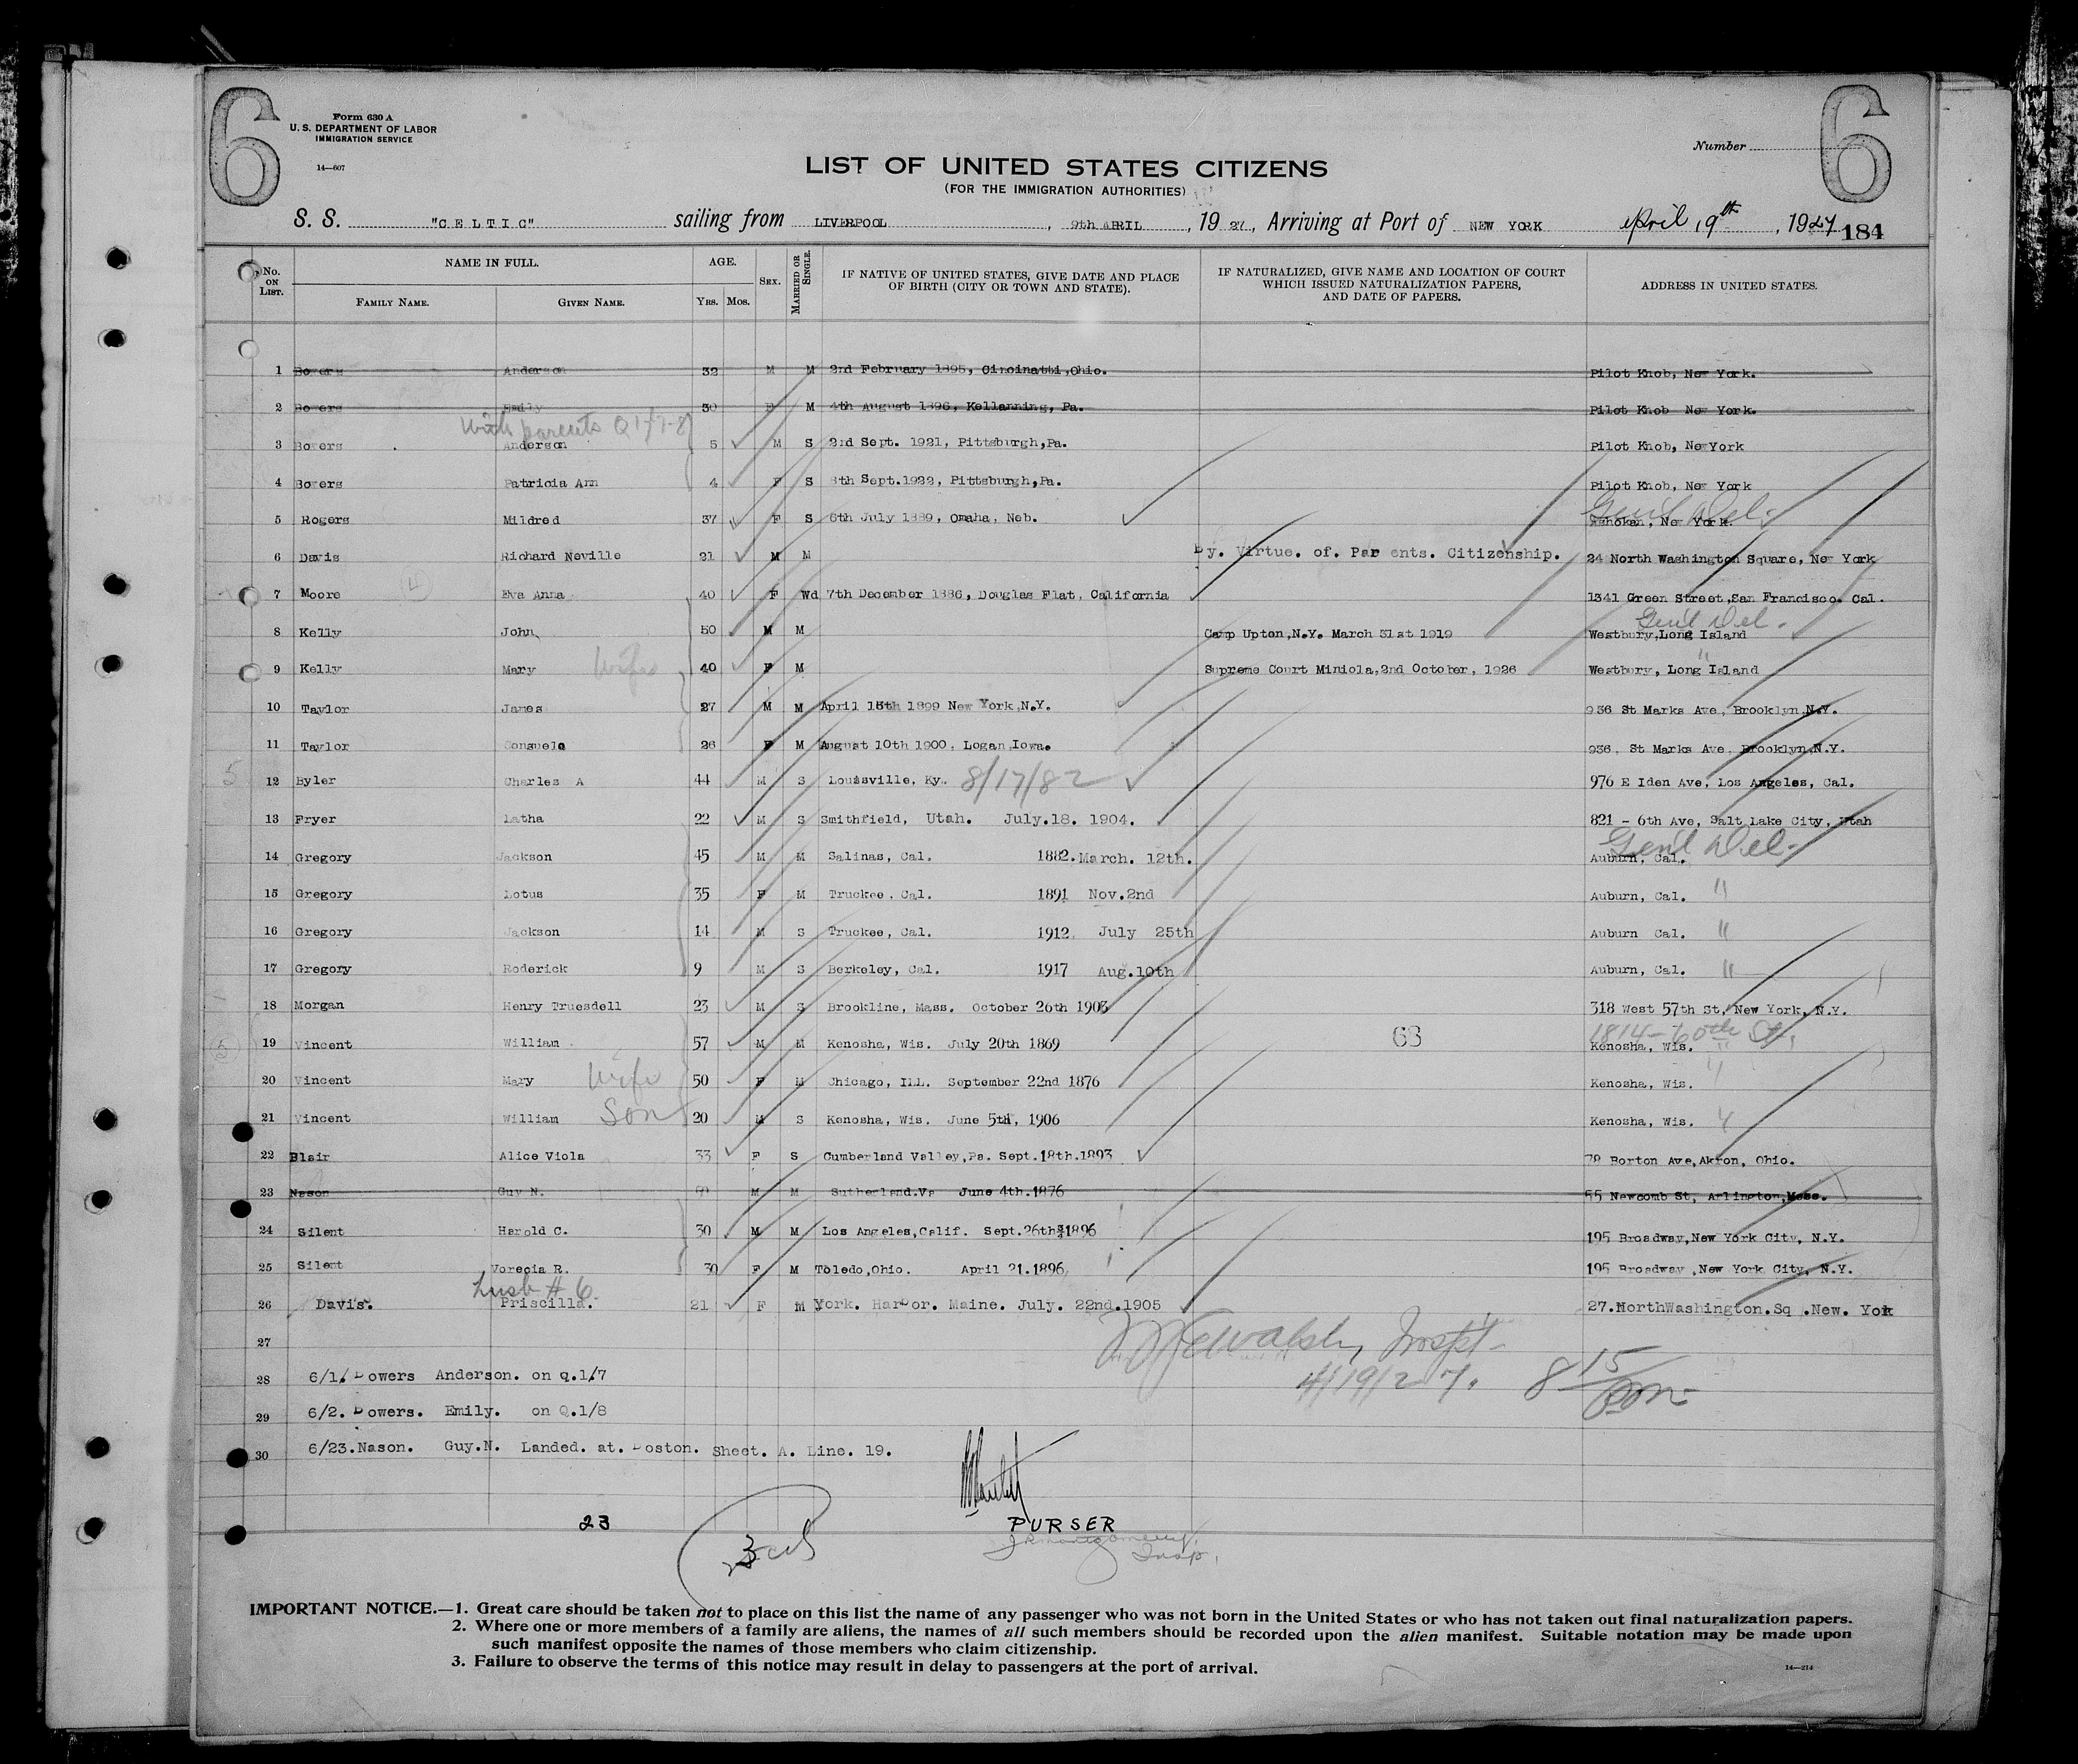 6 6
Form 630 A
U. S. DEPARTMENT OF LABOR
IMMIGRATION SERVICE
14—607
Number
LIST OF UNITED STATES CITIZENS
(FOR THE IMMIGRATION AUTHORITIES)
S. S. "CELTIC" sailing from LIVERPOOL, 9th APRIL, 1927, Arriving at Port of NEW YORK April 19th, 1927 184
No. ON LIST. NAME IN FULL. AGE. SEX. MARRIED OR SINGLE. IF NATIVE OF UNITED STATES, GIVE DATE AND PLACE OF BIRTH (CITY OR TOWN AND STATE). IF NATURALIZED, GIVE NAME AND LOCATION OF COURT WHICH ISSUED NATURALIZATION PAPERS, AND DATE OF PAPERS. ADDRESS IN UNITED STATES.
FAMILY NAME. GIVEN NAME. YRS. MOS.
1 Bowers Anderson 32 M M 2nd February 1895, Cincinatti,Ohio. Pilot Knob, New York.
2 Bowers Emily 30 F M 4th August 1896, Kellanning, Pa. Pilot Knob New York.
With parents Q 1/7-8
3 Bowers Anderson 5 M S 23rd Sept. 1921, Pittsburgh,Pa. Pilot Knob, New York
4 Bowers Patricia Ann 4 F S 8th Sept.1922, Pittsburgh,Pa. Pilot Knob, New York
Genl Del.
5 Rogers Mildred 37 F S 6th July 1889, Omaha, Neb. Ashokan, New York.
6 Davis Richard Neville 21 M M By. Virtue. of. Parents. Citizenship. 24 North Washington Square, New York
4
7 Moore Eva Anna 40 F Wd 7th December 1886, Douglas Flat, California 1341 Green Street,San Francisco. Cal.
Genl Del.
8 Kelly John 50 M M Camp Upton,N.Y. March 31st 1919 Westbury,Long Island
9 Kelly Mary Wife 40 F M Supreme Court Miniola,2nd October, 1926 Westbury, Long Island "
10 Taylor James 27 M M April 18th 1899 New York,N.Y. 936 St Marks Ave, Brooklyn,N.Y.
11 Taylor Consuelo 26 F M August 10th 1900, Logan,Iowa. 936, St Marks Ave, Brooklyn,N.Y.
5 12 Byler Charles A 44 M S Louisville, Ky. 8/17/82 976 E Iden Ave, Los Angeles, Cal.
13 Fryer Latha 22 M S Smithfield, Utah. July.18. 1904. 821 - 6th Ave, Salt Lake City, Utah
Genl Del.
14 Gregory Jackson 45 M M Salinas, Cal. 1882. March. 12th. Auburn, Cal.
15 Gregory Lotus 35 F M Truckee, Cal. 1891 Nov.2nd Auburn, Cal. "
16 Gregory Jackson 14 M S Truckee, Cal. 1912 July 25th Auburn Cal. "
17 Gregory Roderick 9 M S Berkeley, Cal. 1917 Aug.10th Auburn, Cal. "
18 Morgan Henry Truesdell 23 M S Brookline, Mass. October 26th 1903 318 West 57th St, New York, N.Y.
1814-60th St.
5 19 Vincent William 57 M M Kenosha, Wis. July 20th 1869 63 Kenosha, Wis. "
20 Vincent Mary Wife 50 F M Chicago, ILL. September 22nd 1876 Kenosha, Wis. "
21 Vincent William Son 20 M S Kenosha, Wis. June 5th, 1906 Kenosha, Wis. "
22 Blair Alice Viola 33 F S Cumberland Valley,Pa. Sept.18th.1893 78 Borton Ave,Akron, Ohio.
23 Nason Guy N. M M Sutherland.Va June 4th.1876 55 Newcomb St, Arlington,Mass.
24 Silent Harold C. 30 M M Los Angeles,Calif. Sept.26th 1896 195 Broadway,New York City, N.Y.
25 Silent Vorecia R. 30 F M Toledo,Ohio. April 21.1896 195 Broadway ,New York City, N.Y.
Husb # 6
26 Davis. Priscilla. 21 F M York. Harbor. Maine. July. 22nd.1905 27.NorthWashington.Sq .New. York
27
Walsh, Inspt.
28 6/1. Bowers Anderson. on Q.1/7 4/19/27. 8 15 pm
29 6/2. Bowers. Emily. on Q.1/8
30 6/23.Nason. Guy.N. Landed. at. Boston. Sheet. A. Line. 19.
23
PURSER
J R Montgomery
Insp.
IMPORTANT NOTICE.—1. Great care should be taken not to place on this list the name of any passenger who was not born in the United States or who has not taken out final naturalization papers.
2. Where one or more members of a family are aliens, the names of all such members should be recorded upon the alien manifest. Suitable notation may be made upon
such manifest opposite the names of those members who claim citizenship.
3. Failure to observe the terms of this notice may result in delay to passengers at the port of arrival.
14—214